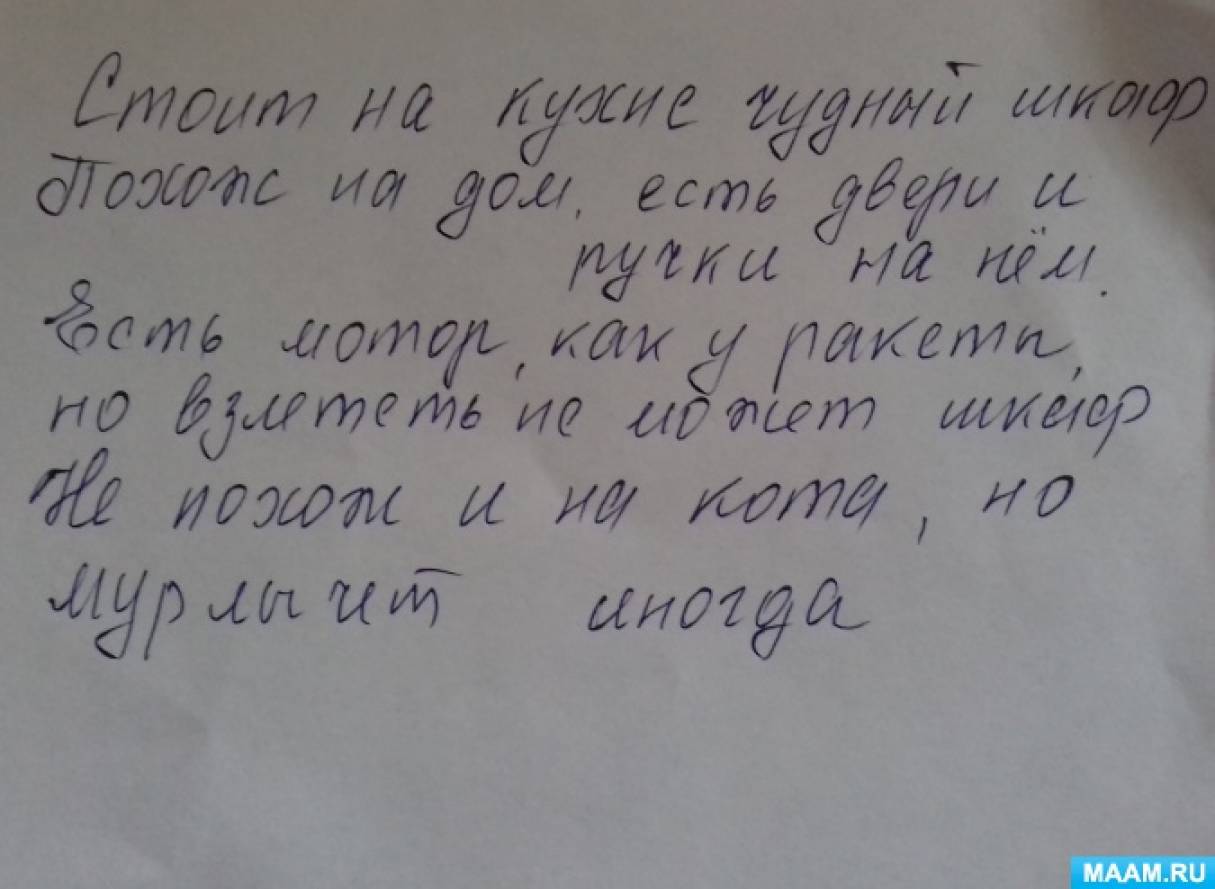 Стоит на кухне чудный шкаф
Похож на дом, есть двери и
ручки на нём.
Есть мотор, как у ракеты,
но взлететь не может шкаф
Не похож и на кота, но
мурлычет иногда
MAAM.RU